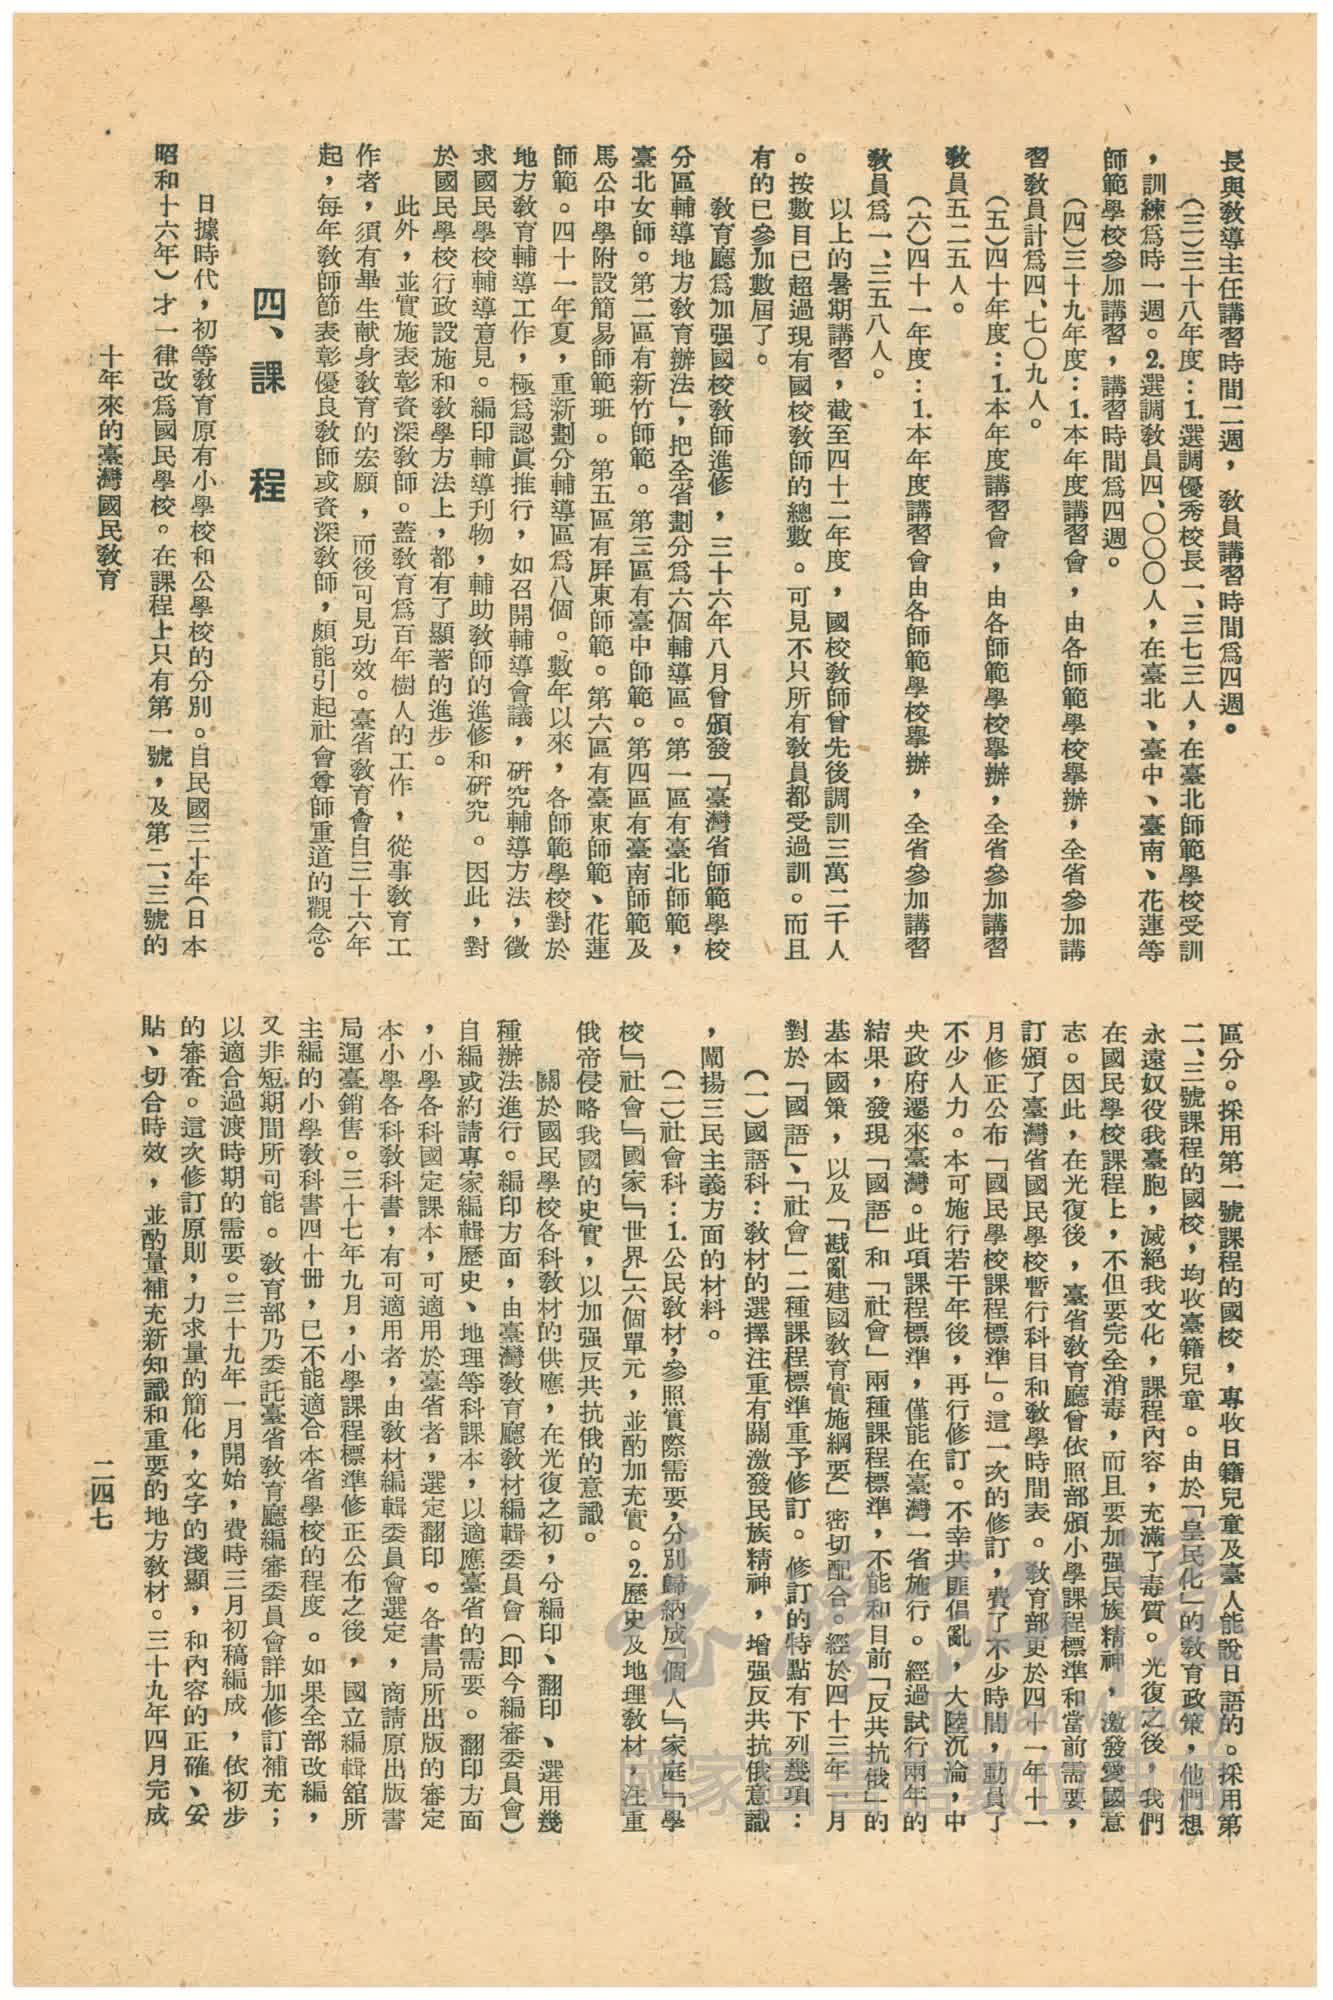 長與教導主任講習時間二週，教員講習時間爲四週。
（三）三十八年度：1.選調優秀校長一、三七三人，在臺北師範學校受訓
，訓練爲時一週。2.選調教員四、〇〇〇人，在臺北、臺中、臺南、花蓮等
師範學校參加講習，講習時間爲四週。
（四）三十九年度：1.本年度講習會，由各師範學校舉辦，全省參加講
習教員計爲四、七〇九人。
（五）四十年度：1.本年度講習會，由各師範學校舉辦，全省參加講習
教員五二五人。
（六）四十一年度：1.本年度講習會由各師範學校舉辦，全省參加講習
教員爲一、三五八人。
以上的暑期講習，截至四十二年度，國校教師曾先後調訓三萬二千人
。按數目已超過現有國校教師的總數。可見不只所有教員都受過訓。而且
有的已參加數屆了。
教育廳爲加强國校教師進修，三十六年八月曾頒發「臺灣省師範學校
分區輔導地方教育辦法」，把全省劃分爲六個輔導區。第一區有臺北師範，
臺北女師。第二區有新竹師範。第三區有臺中師範。第四區有臺南師範及
馬公中學附設簡易師範班。第五區有屏東師範。第六區有臺東師範、花蓮
師範。四十一年夏，重新劃分輔導區爲八個。數年以來，各師範學校對於
地方教育輔導工作，極爲認眞推行，如召開輔導會議，硏究輔導方法，徵
求國民學校輔導意見。編印輔導刊物，輔助教師的進修和硏究。因此，對
於國民學校行政設施和教學方法上，都有了顯著的進步。
此外，並實施表彰資深教師。蓋教育爲百年樹人的工作，從事教育工
作者，須有畢生献身教育的宏願，而後可見功效。臺省教育會自三十六年
起，每年教師節表彰優良教師或資深教師，頗能引起社會尊師重道的觀念。
四、課　程
日據時代，初等教育原有小學校和公學校的分別。自民國三十年（日本
昭和十六年）才一律改爲國民學校。在課程上只有第一號，及第二、三號的
十年來的臺灣國民教育
區分。採用第一號課程的國校，專收日籍兒童及臺人能說日語的。採用第
二、三號課程的國校，均收臺籍兒童。由於「皇民化」的教育政策，他們想
永遠奴役我臺胞，滅絕我文化，課程內容，充滿了毒質。光復之後，我們
在國民學校課程上，不但要完全消毒，而且要加强民族精神，激發愛國意
志。因此，在光復後，臺省教育廳曾依照部頒小學課程標準和當前需要，
訂頒了臺灣省國民學校暫行科目和教學時間表。教育部更於四十一年十一
月修正公布「國民學校課程標準」。這一次的修訂，費了不少時間，動員了
不少人力。本可施行若干年後，再行修訂。不幸共匪倡亂，大陸沉淪，中
央政府遷來臺灣。此項課程標準，僅能在臺灣一省施行。經過試行兩年的
結果，發現「國語」和「社會」兩種課程標準，不能和目前「反共抗俄」的
基本國策，以及「戡亂建國教育實施綱要」密切配合。經於四十三年一月
對於「國語」、「社會」二種課程標準重予修訂。修訂的特點有下列幾項：
（一）國語科：教材的選擇注重有關激發民族精神，增强反共抗俄意識
，闡揚三民主義方面的材料。
（二）社會科：1.公民教材，參照實際需要，分別歸納成「個人」「家庭」「學
校」「社會」「國家」「世界」六個單元，並酌加充實。2.歷史及地理教材，注重
俄帝侵略我國的史實，以加强反共抗俄的意識。
關於國民學校各科教材的供應，在光復之初，分編印、翻印、選用幾
種辦法進行。編印方面，由臺灣教育廳教材編輯委員會（即今編審委員會）
自編或約請專家編輯歷史、地理等科課本，以適應臺省的需要。翻印方面
，小學各科國定課本，可適用於臺省者，選定翻印。各書局所出版的審定
本小學各科教科書，有可適用者，由教材編輯委員會選定，商請原出版書
局運臺銷售。三十七年九月，小學課程標準修正公布之後，國立編輯舘所
主編的小學教科書四十册，已不能適合本省學校的程度。如果全部改編，
又非短期間所可能。教育部乃委託臺省教育廳編審委員會詳加修訂補充；
以適合過渡時期的需要。三十九年一月開始，費時三月初稿編成，依初步
的審查。這次修訂原則，力求量的簡化，文字的淺顯，和內容的正確、妥
貼、切合時效，並酌量補充新知識和重要的地方教材。三十九年四月完成
二四七
臺灣記憶
Taiwan Memory
國家圖書館數位典藏